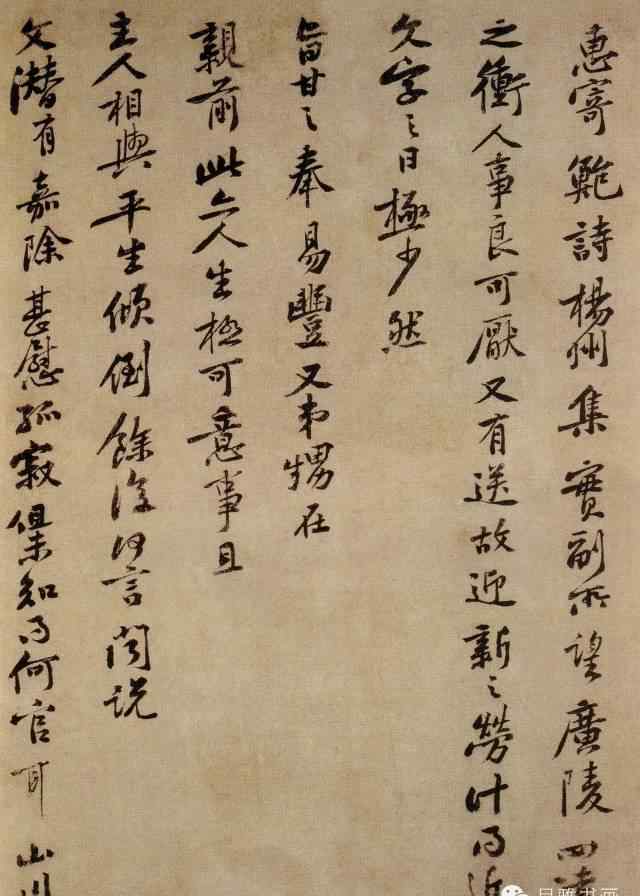 惠寄鮑詩楊州集實副所望廣陵四
之衝人事良可厭又有送故迎新之勞計得近
文字之日極少然
旨甘之奉易豐又弟甥在
親前此亦人生極可意事且
主人相與平生傾倒餘復何言聞說
文潛有嘉除甚慰孤寂但未知得何官耳山川